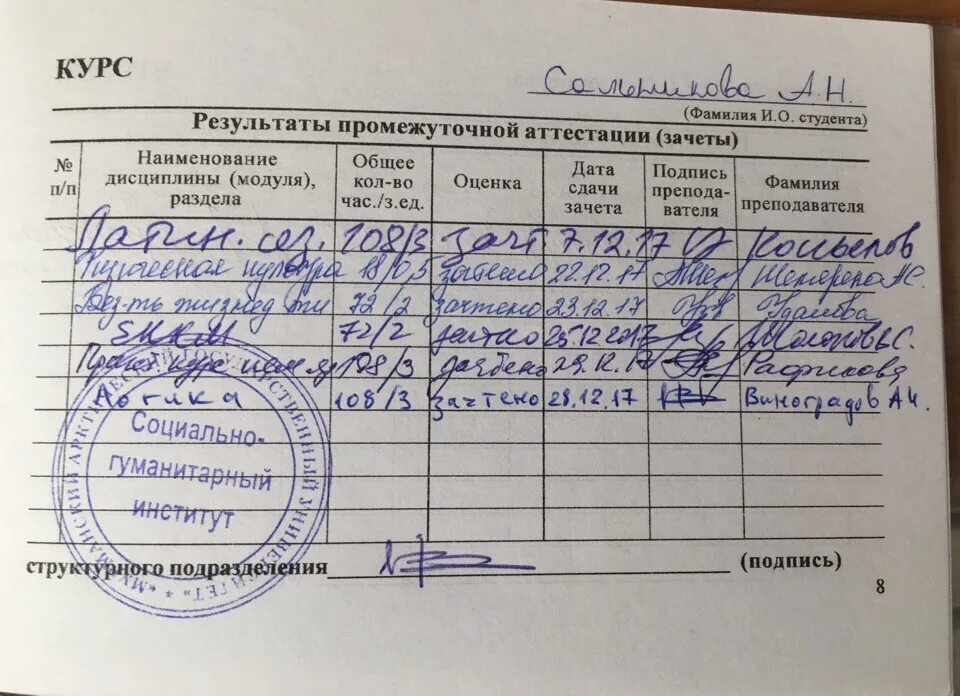 КУРС
Сальникова А.Н.
(Фамилия И.О. студента)
Результаты промежуточной аттестации (зачеты)
№ п/п Наименование дисциплины (модуля), раздела Общее кол-во час./з.ед. Оценка Дата сдачи зачета Подпись препода-вателя Фамилия преподавателя
Латин. яз. 108/3 зачт 7.12.17 Копылов
Физическая культура 18/0,5 зачтено 22.12.17
Без-ть жизнед-ти 72/2 зачтено 23.12.17
72/2 25.12.2017
108/3 29.12.17 Рафикова
Логика 108/3 зачтено 28.12.17 Виноградов А.И.
МУРМАНСКИЙ АРКТИЧЕСКИЙ ГОСУДАРСТВЕННЫЙ УНИВЕРСИТЕТ
Социально-
гуманитарный
институт
структурного подразделения (подпись)
8